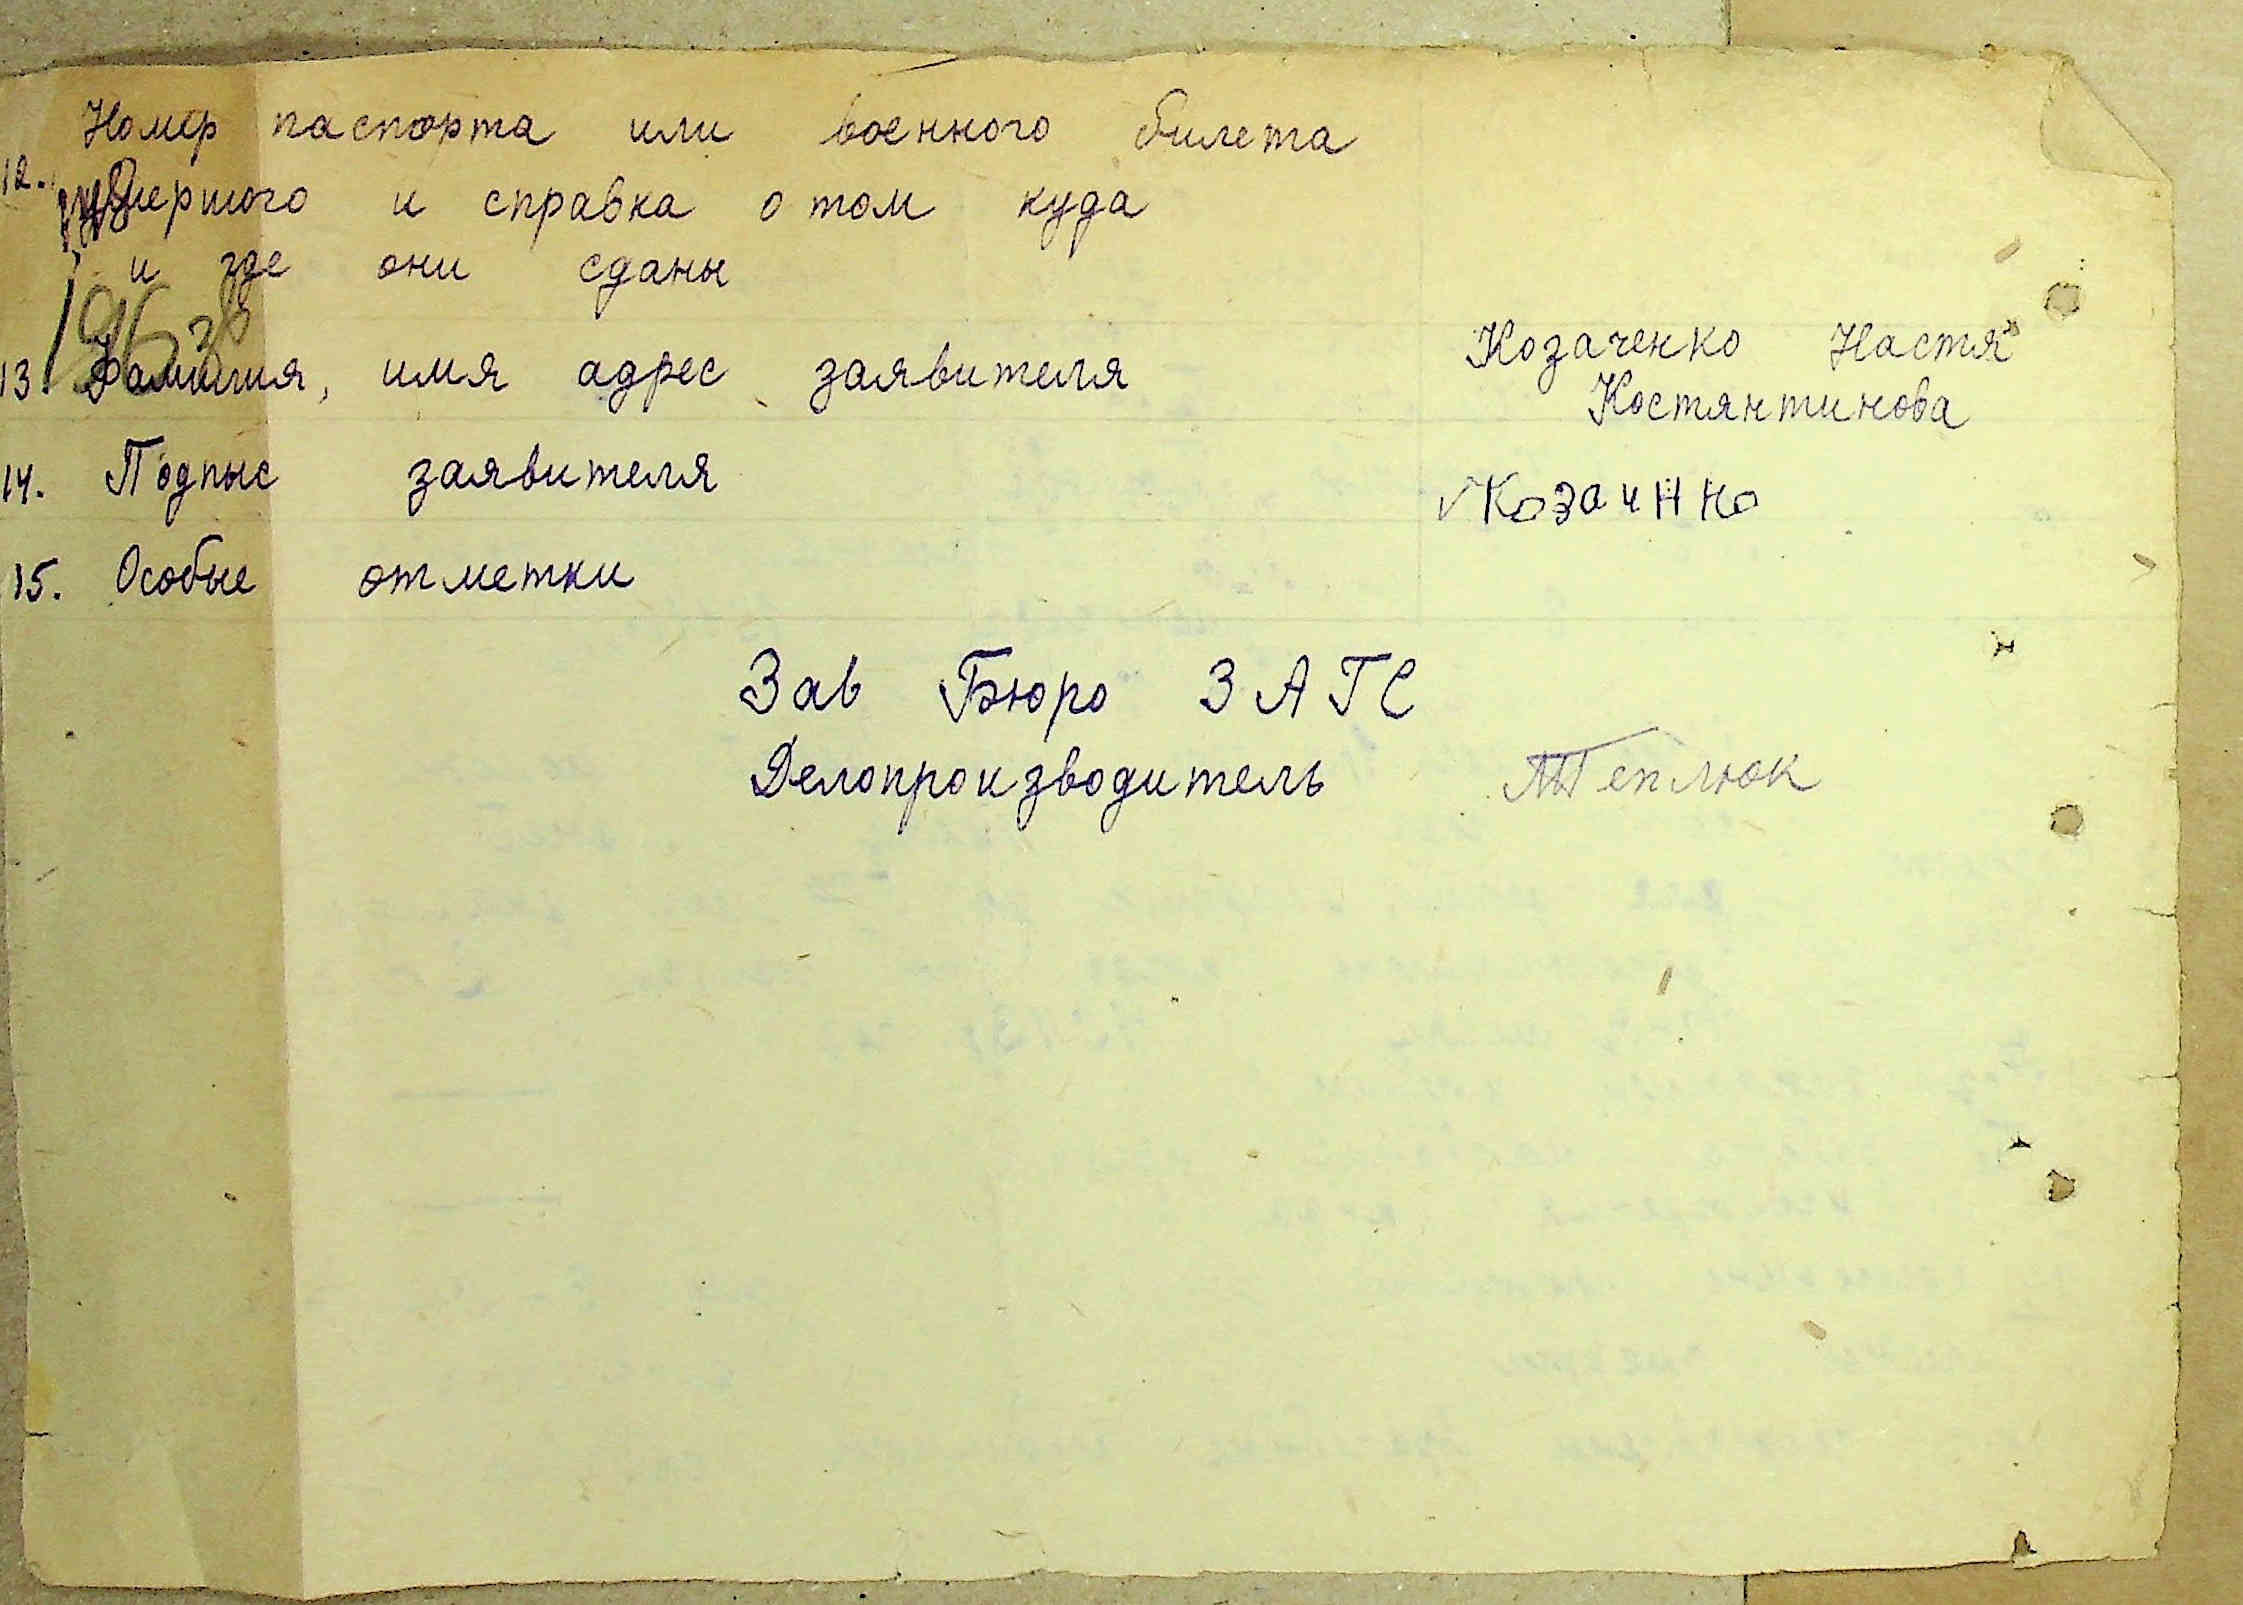 Номер паспорта или военного билета
12. умершого и справка о том куда
и где они сданы
Козаченко Настя
13. Фамилия, имя адрес заявителя
Костянтинова
14. Подпыс заявителя Козачнко
15. Особые отметки
Зав Бюро ЗАГС
Делопроизводитель МТеплюк